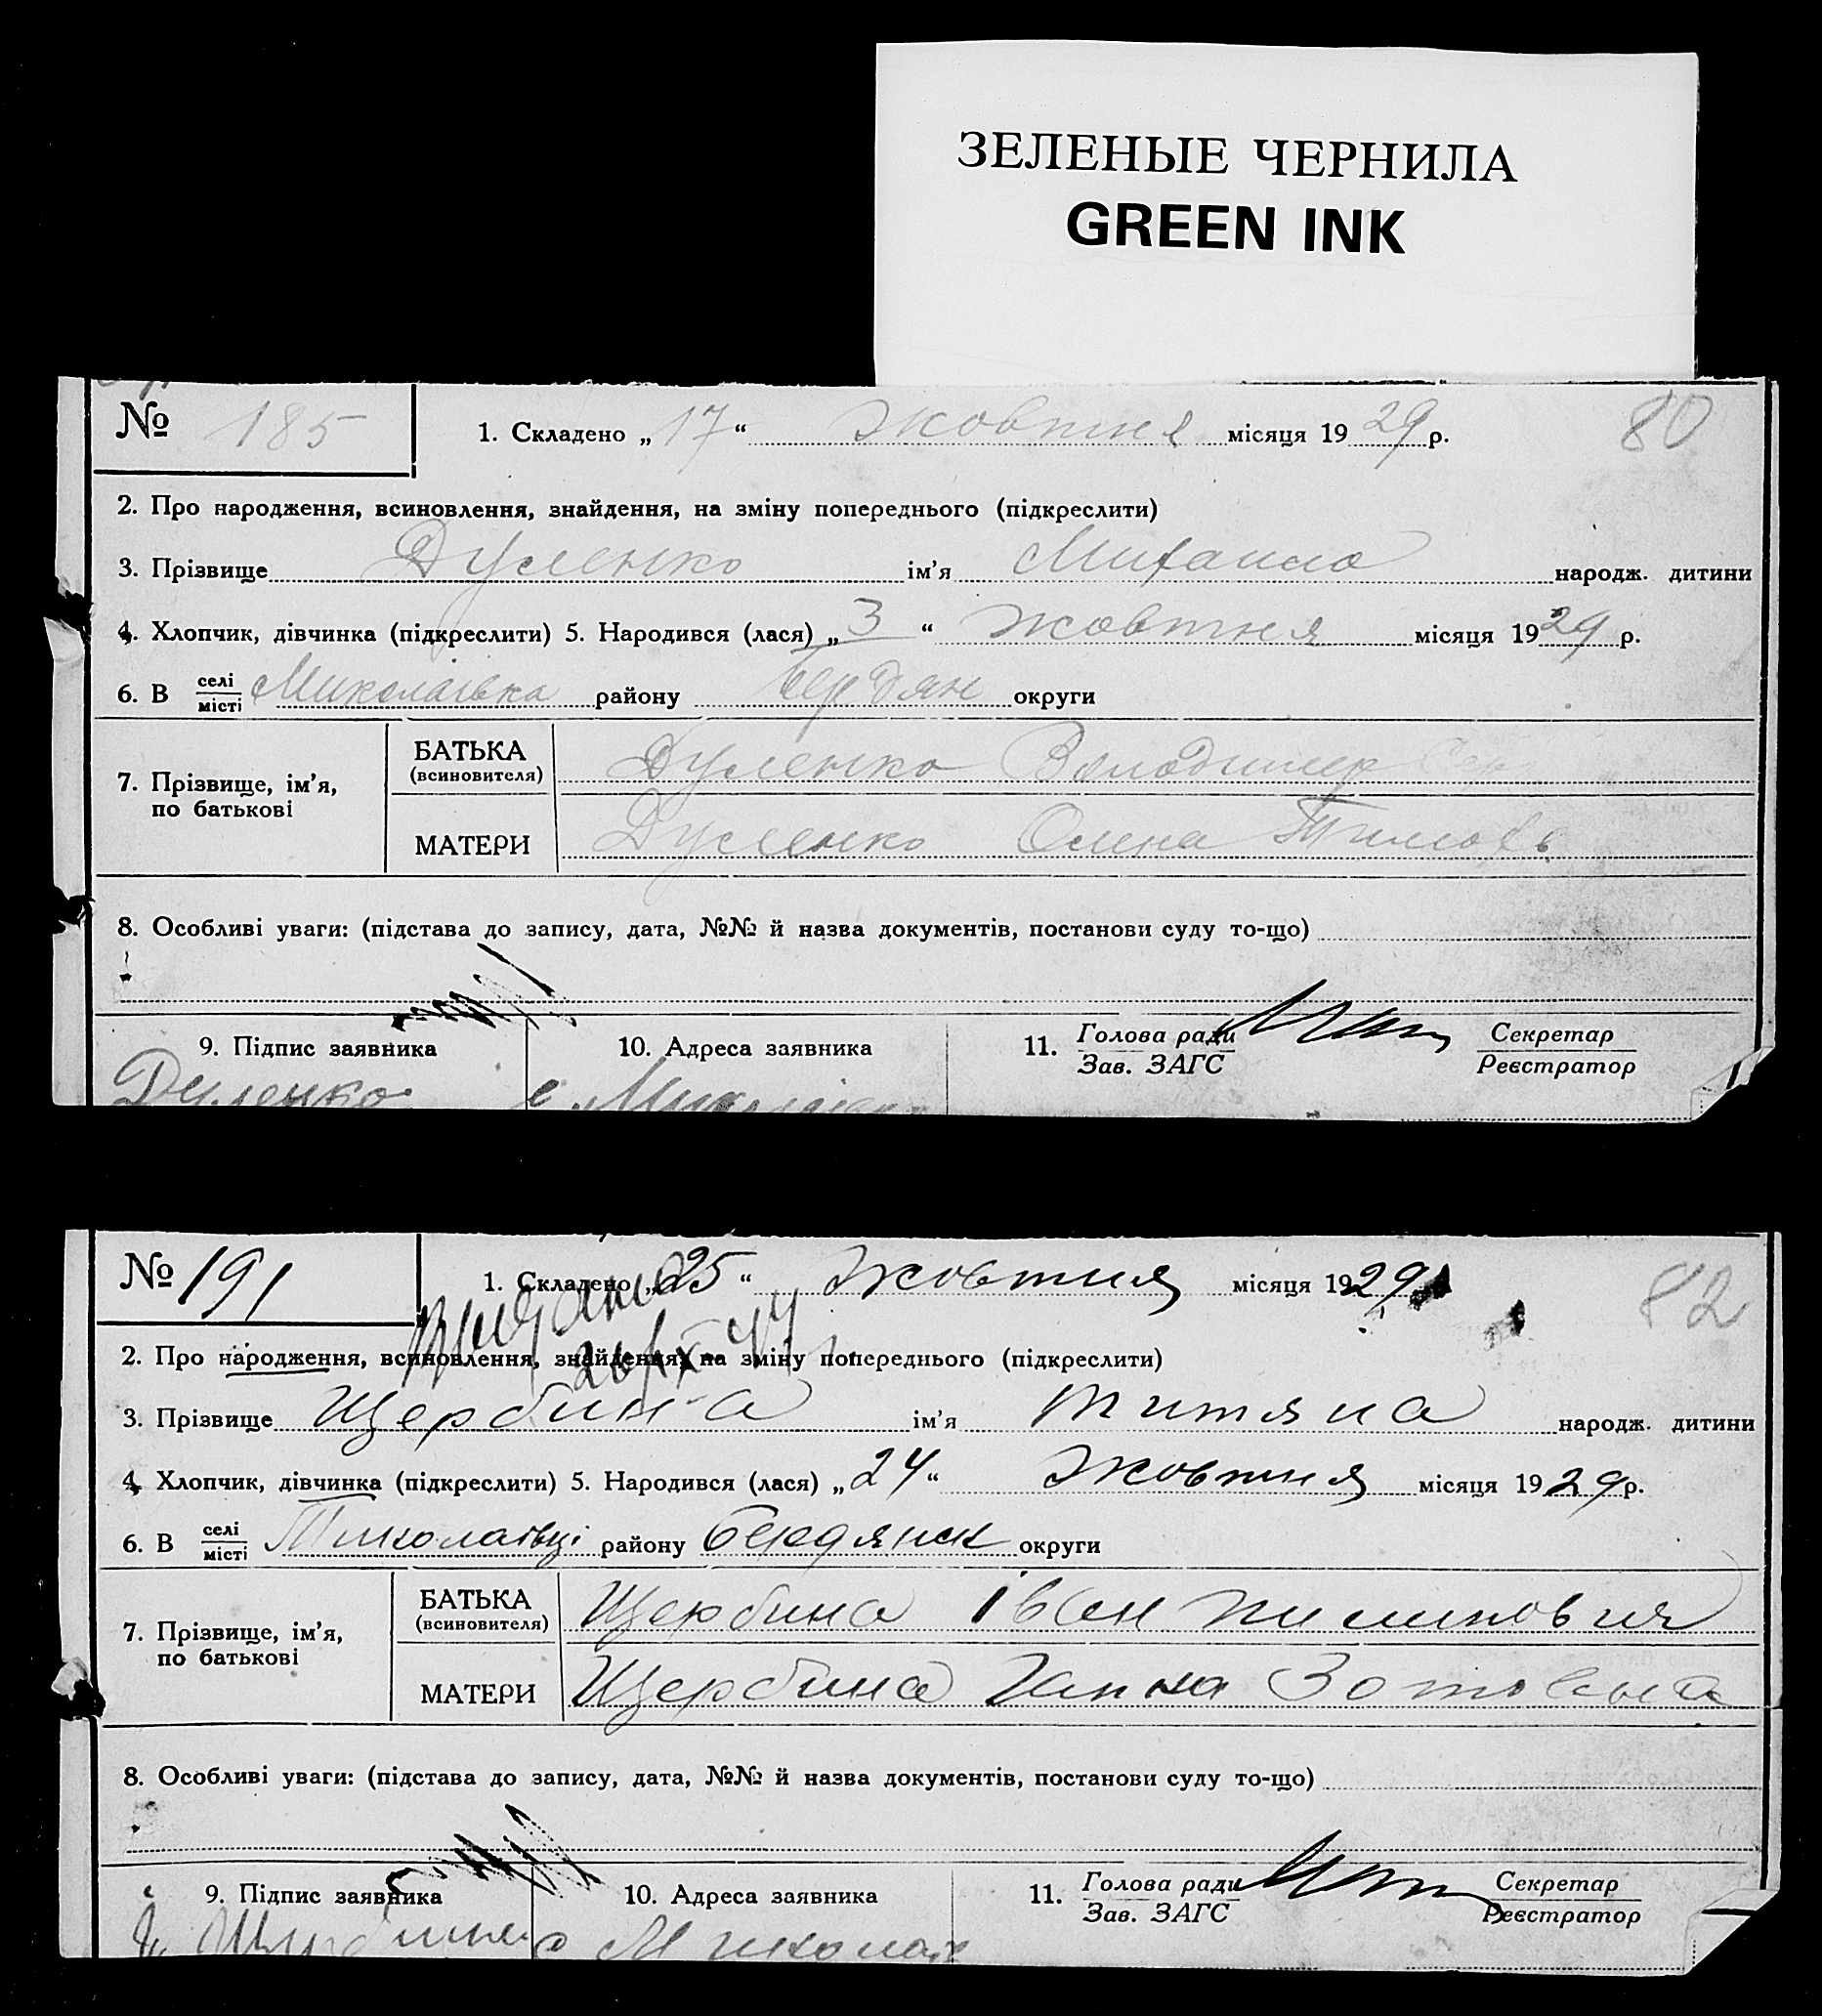 ЗЕЛЕНЫЕ ЧЕРНИЛА
GREEN INK
№ 185 1. Складено „17“ жовтня місяця 1929 р. 80
2. Про народження, всиновлення, знайдення, на зміну попереднього (підкреслити)
3. Прізвище Дуленко ім'я Михаило народж. дитини
4. Хлопчик, дівчинка (підкреслити) 5. Народився (лася) „3“ жовтня місяця 1929 р.
6. В селі/місті Миколаівка району Бердян округи
7. Прізвище, ім'я, по батькові
БАТЬКА (всиновителя) Дуленко Володимер
МАТЕРИ Дуленко Олена Тимофь
8. Особливі уваги: (підстава до запису, дата, №№ й назва документів, постанови суду то-що)
9. Підпис заявника 10. Адреса заявника 11. Голова ради/Зав. ЗАГС Секретар/Реєстратор
Дуленко с.
№ 191 1. Складено „25“ жовтня місяця 1929 82
2. Про народження, всиновлення, знайдення, на зміну попереднього (підкреслити)
3. Прізвище Щербина ім'я Титяна народж. дитини
4. Хлопчик, дівчинка (підкреслити) 5. Народився (лася) „24“ жовтня місяця 1929 р.
6. В селі/місті Миколаівці району Бердянск округи
7. Прізвище, ім'я, по батькові
БАТЬКА (всиновителя) Щербина Іван
МАТЕРИ Щербина Ганна Зотовна
8. Особливі уваги: (підстава до запису, дата, №№ й назва документів, постанови суду то-що)
9. Підпис заявника 10. Адреса заявника 11. Голова ради/Зав. ЗАГС Секретар/Реєстратор